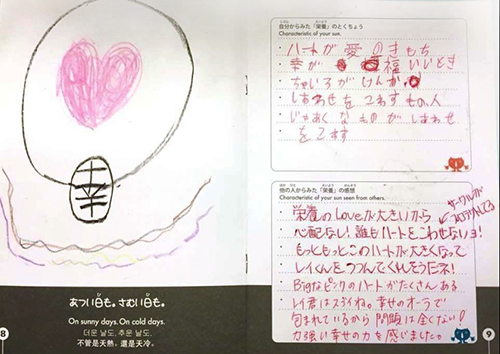 幸
あつい日も。さむい日も。
On sunny days. On cold days.
더운 날도. 추운 날도.
不管是天熱，還是天冷。
8
自分からみた「栄養」のとくちょう
Characteristic of your sun.
・ハートが愛のきもち
・幸が 福 いいとき
・ちゃいろがけんか
・しあわせをこわすもの、人
・じゃあくなものがしあわせ
・をこわす
他の人からみた「栄養」の感想
Characteristic of your sun seen from others.
・栄養のLoveが大きいから
・心配なし！誰もハートをこわせないヨ！
・もっともっとこのハートが大きくなって
・レイくんをつつんでくれそうだネ！
・Bigなピンクのハートがたくさんある
・レイ君はスゴイね。幸せのオーラで
包まれているから問題は全くない！
力強い幸せの力を感じました。
9